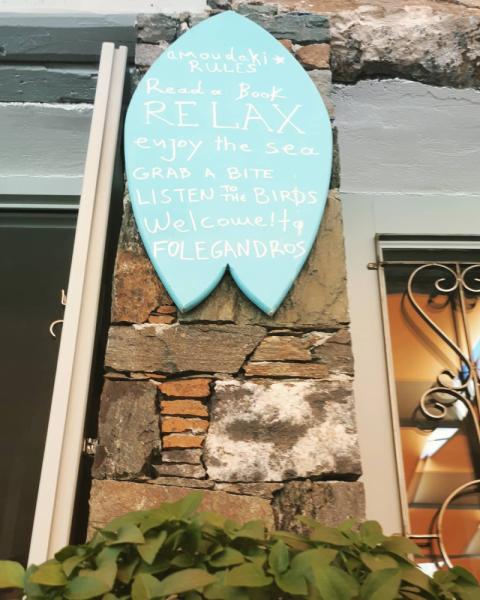 amoudaki *
RULES
Read a Book
RELAX
enjoy the sea
GRAB A BITE
LISTEN TO THE BIRDS
Welcome! to
FOLEGANDROS